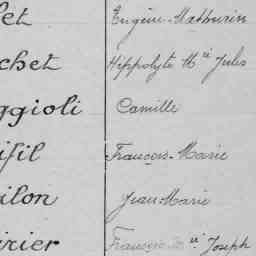 let Eugène-Mathurin
chet Hippolyte Mie Jules
ggioli Camille
ifil François-Marie
ilon Jean Marie
irier François Mie Joseph